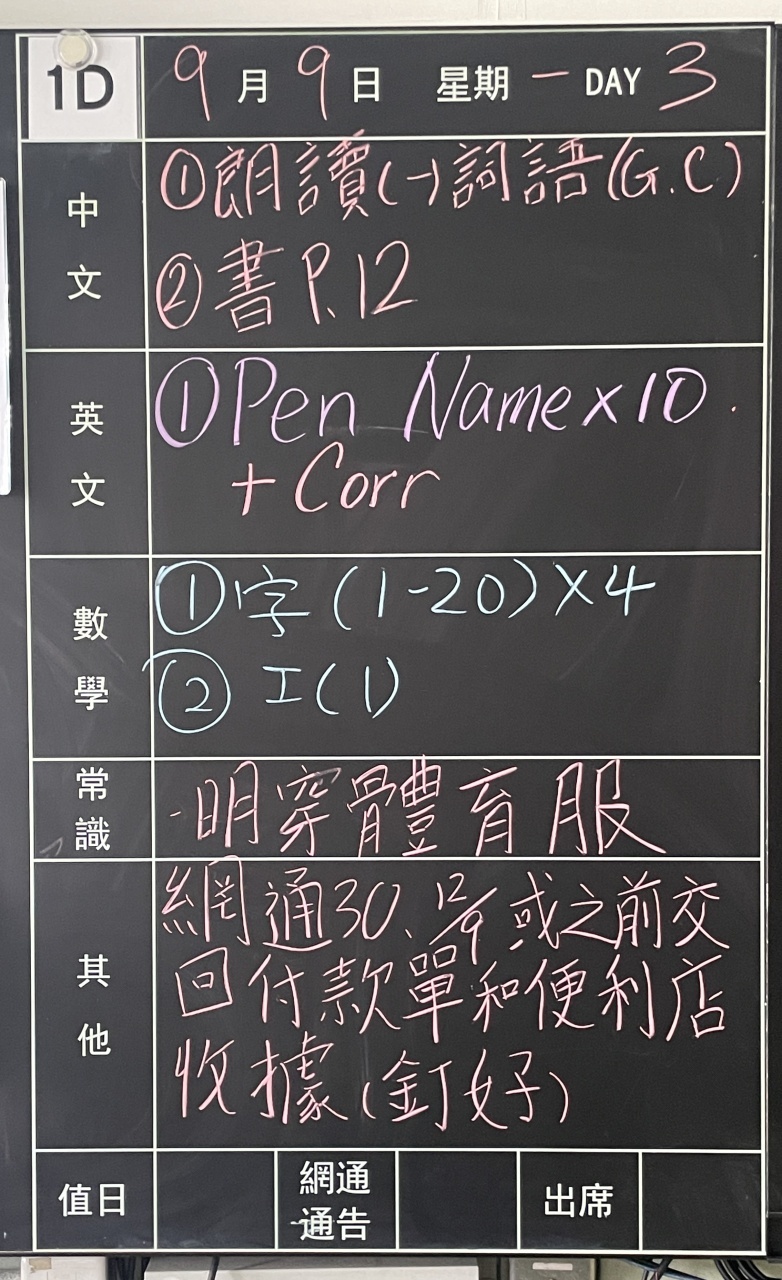 1D 9月9日 星期一 DAY 3
中文
①朗讀(一)詞語(G.C)
②書P.12
英文
①Pen Name×10
+Corr
數學
①字(1-20)×4
②工(1)
常識
明穿體育服
其他
網通30、12/9或之前交
回付款單和便利店
收據(釘好)
值日
網通
通告
出席